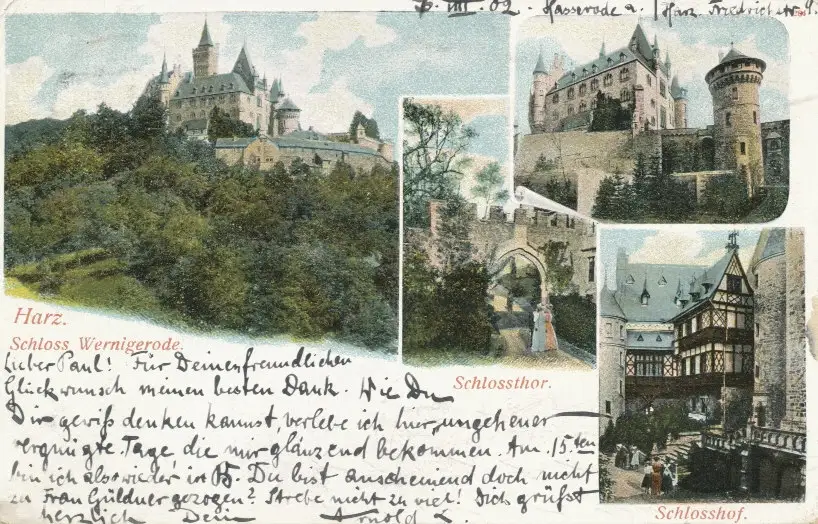 6. VIII. 02. Hasserode a. Harz. Friedrichstr. 9.
Harz.
Schloss Wernigerode.
Schlossthor.
Schlosshof.
Lieber Paul! Für Deinen freundlichen
Glückwunsch meinen besten Dank. Wie Du
Dir gewiß denken kannst, verlebe ich hier ungeheuer
vergnügte Tage, die mir glänzend bekommen. Am 15.ten
bin ich also wieder in B. Du bist anscheinend doch nicht
zu Frau Güldner gezogen? Strebe nicht zu viel! Dich grüßt
herzlich Dein Arnold